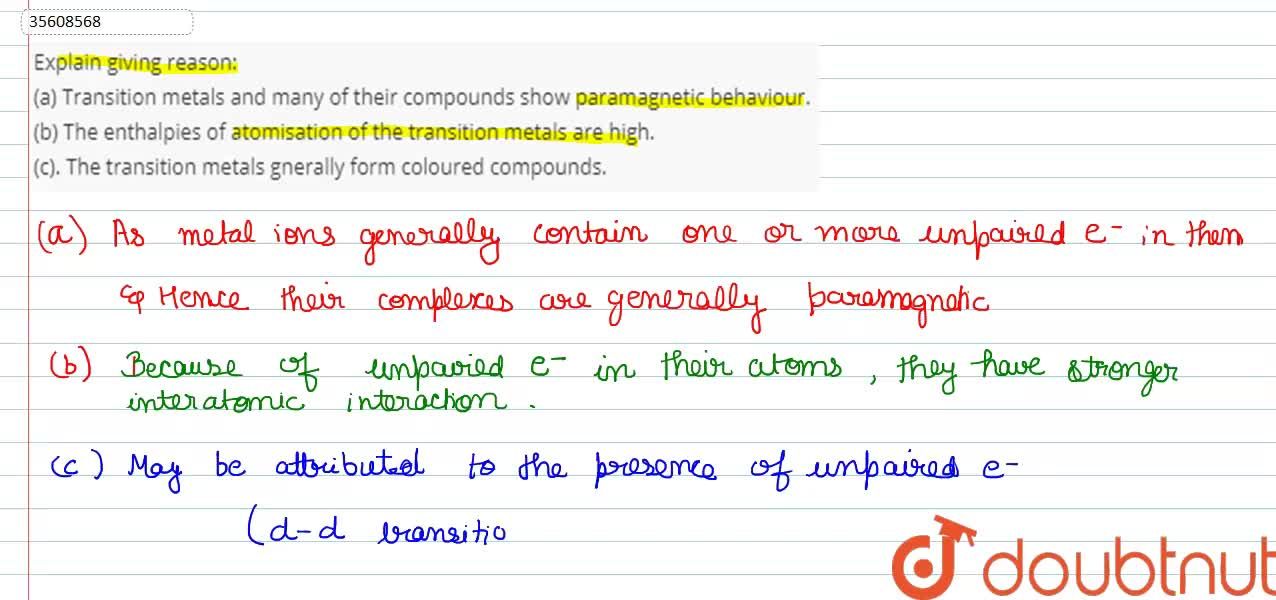 35608568
Explain giving reason:
(a) Transition metals and many of their compounds show paramagnetic behaviour.
(b) The enthalpies of atomisation of the transition metals are high.
(c). The transition metals gnerally form coloured compounds.
(a) As metal ions generally contain one or more unpaired e- in them
& Hence their complexes are generally paramagnetic
(b) Because of unpaired e- in their atoms, they have stronger
interatomic interaction.
(c) May be attributed to the presence of unpaired e-
(d-d transitio
doubtnut